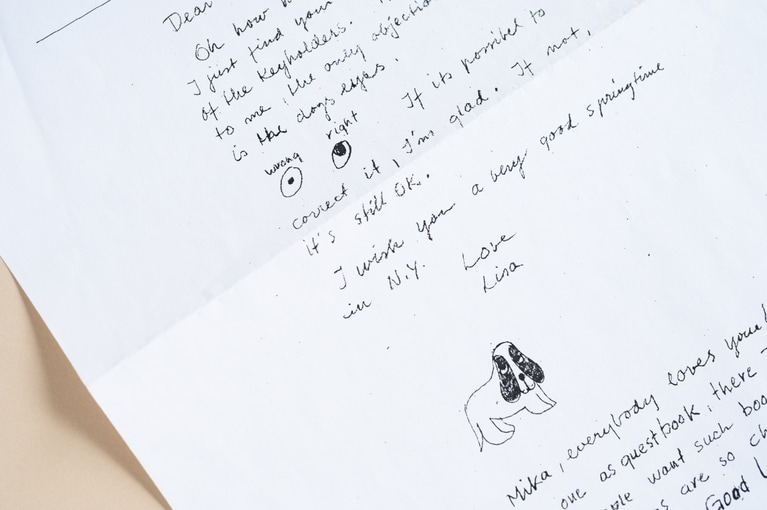 Dear
Oh how
I just find your
of the keyholders.
to me, the only objection
is the dogs eyes.
wrong right
If its possible to
correct it, I'm glad. If not,
it's still OK.
I wish you a very good springtime
in N.Y. Love
Lisa
Mika, everybody loves your
one as guestbook, there
want such
are so
Good